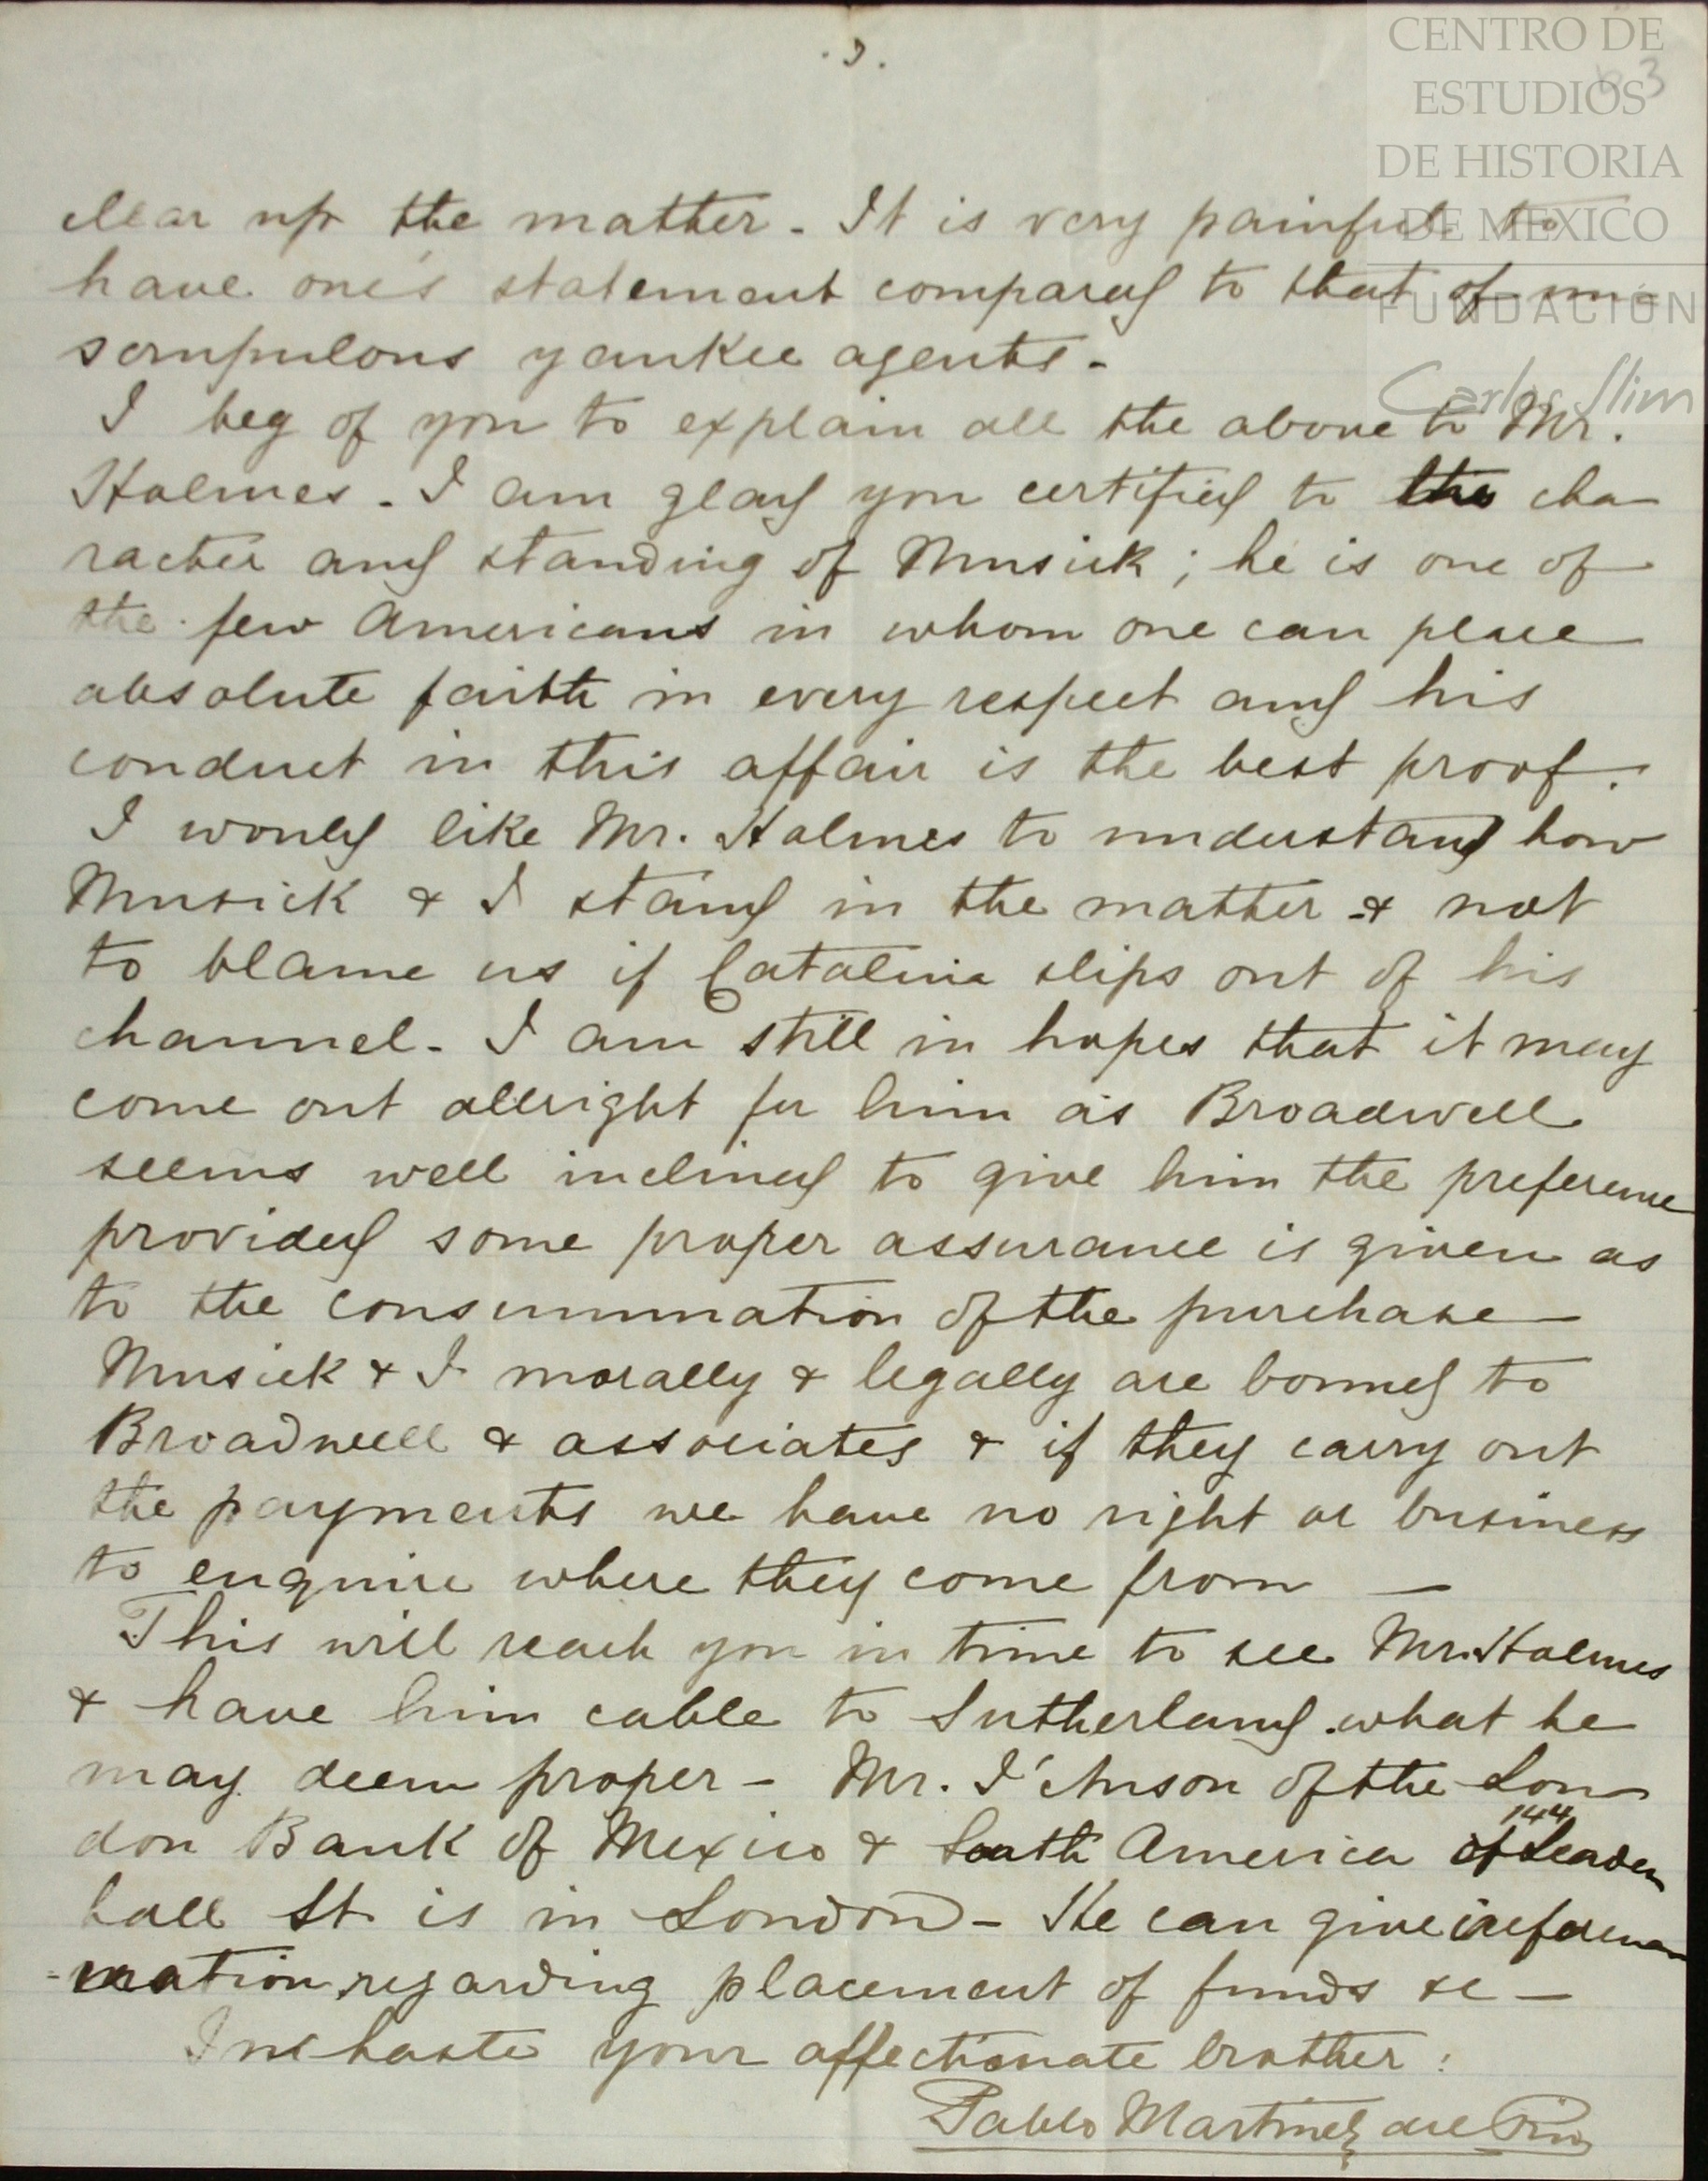 .3.
63
CENTRO DE
ESTUDIOS
DE HISTORIA
DE MEXICO
FUNDACIÓN
Carlos Slim
clear up the matter - It is very painful to
have one's statement compared to that of un-
scrupulous yankee agents -
I beg of you to explain all the above to Mr.
Holmes - I am glad you certified to the cha-
racter and standing of Musick ; he is one of
the few Americans in whom one can place
absolute faith in every respect and his
conduct in this affair is the best proof.
I would like Mr. Holmes to understand how
Musick & I stand in the matter & not
to blame us if Catalina slips out of his
channel - I am still in hopes that it may
come out allright for him as Broadwell
seems well inclined to give him the preference
provided some proper assurance is given as
to the consummation of the purchase -
Musick & I morally & legally are bound to
Broadwell & associates & if they carry out
the payments we have no right or business
to enquire where they come from -
This will reach you in time to see Mr. Holmes
& have him cable to Sutherland what he
may deem proper - Mr. I'Anson of the Lon-
don Bank of Mexico & South America of 144 Leaden
hall St. is in London - He can give infor-
-mation regarding placement of funds &c -
In haste your affectionate brother :
Pablo Martinez del Rio